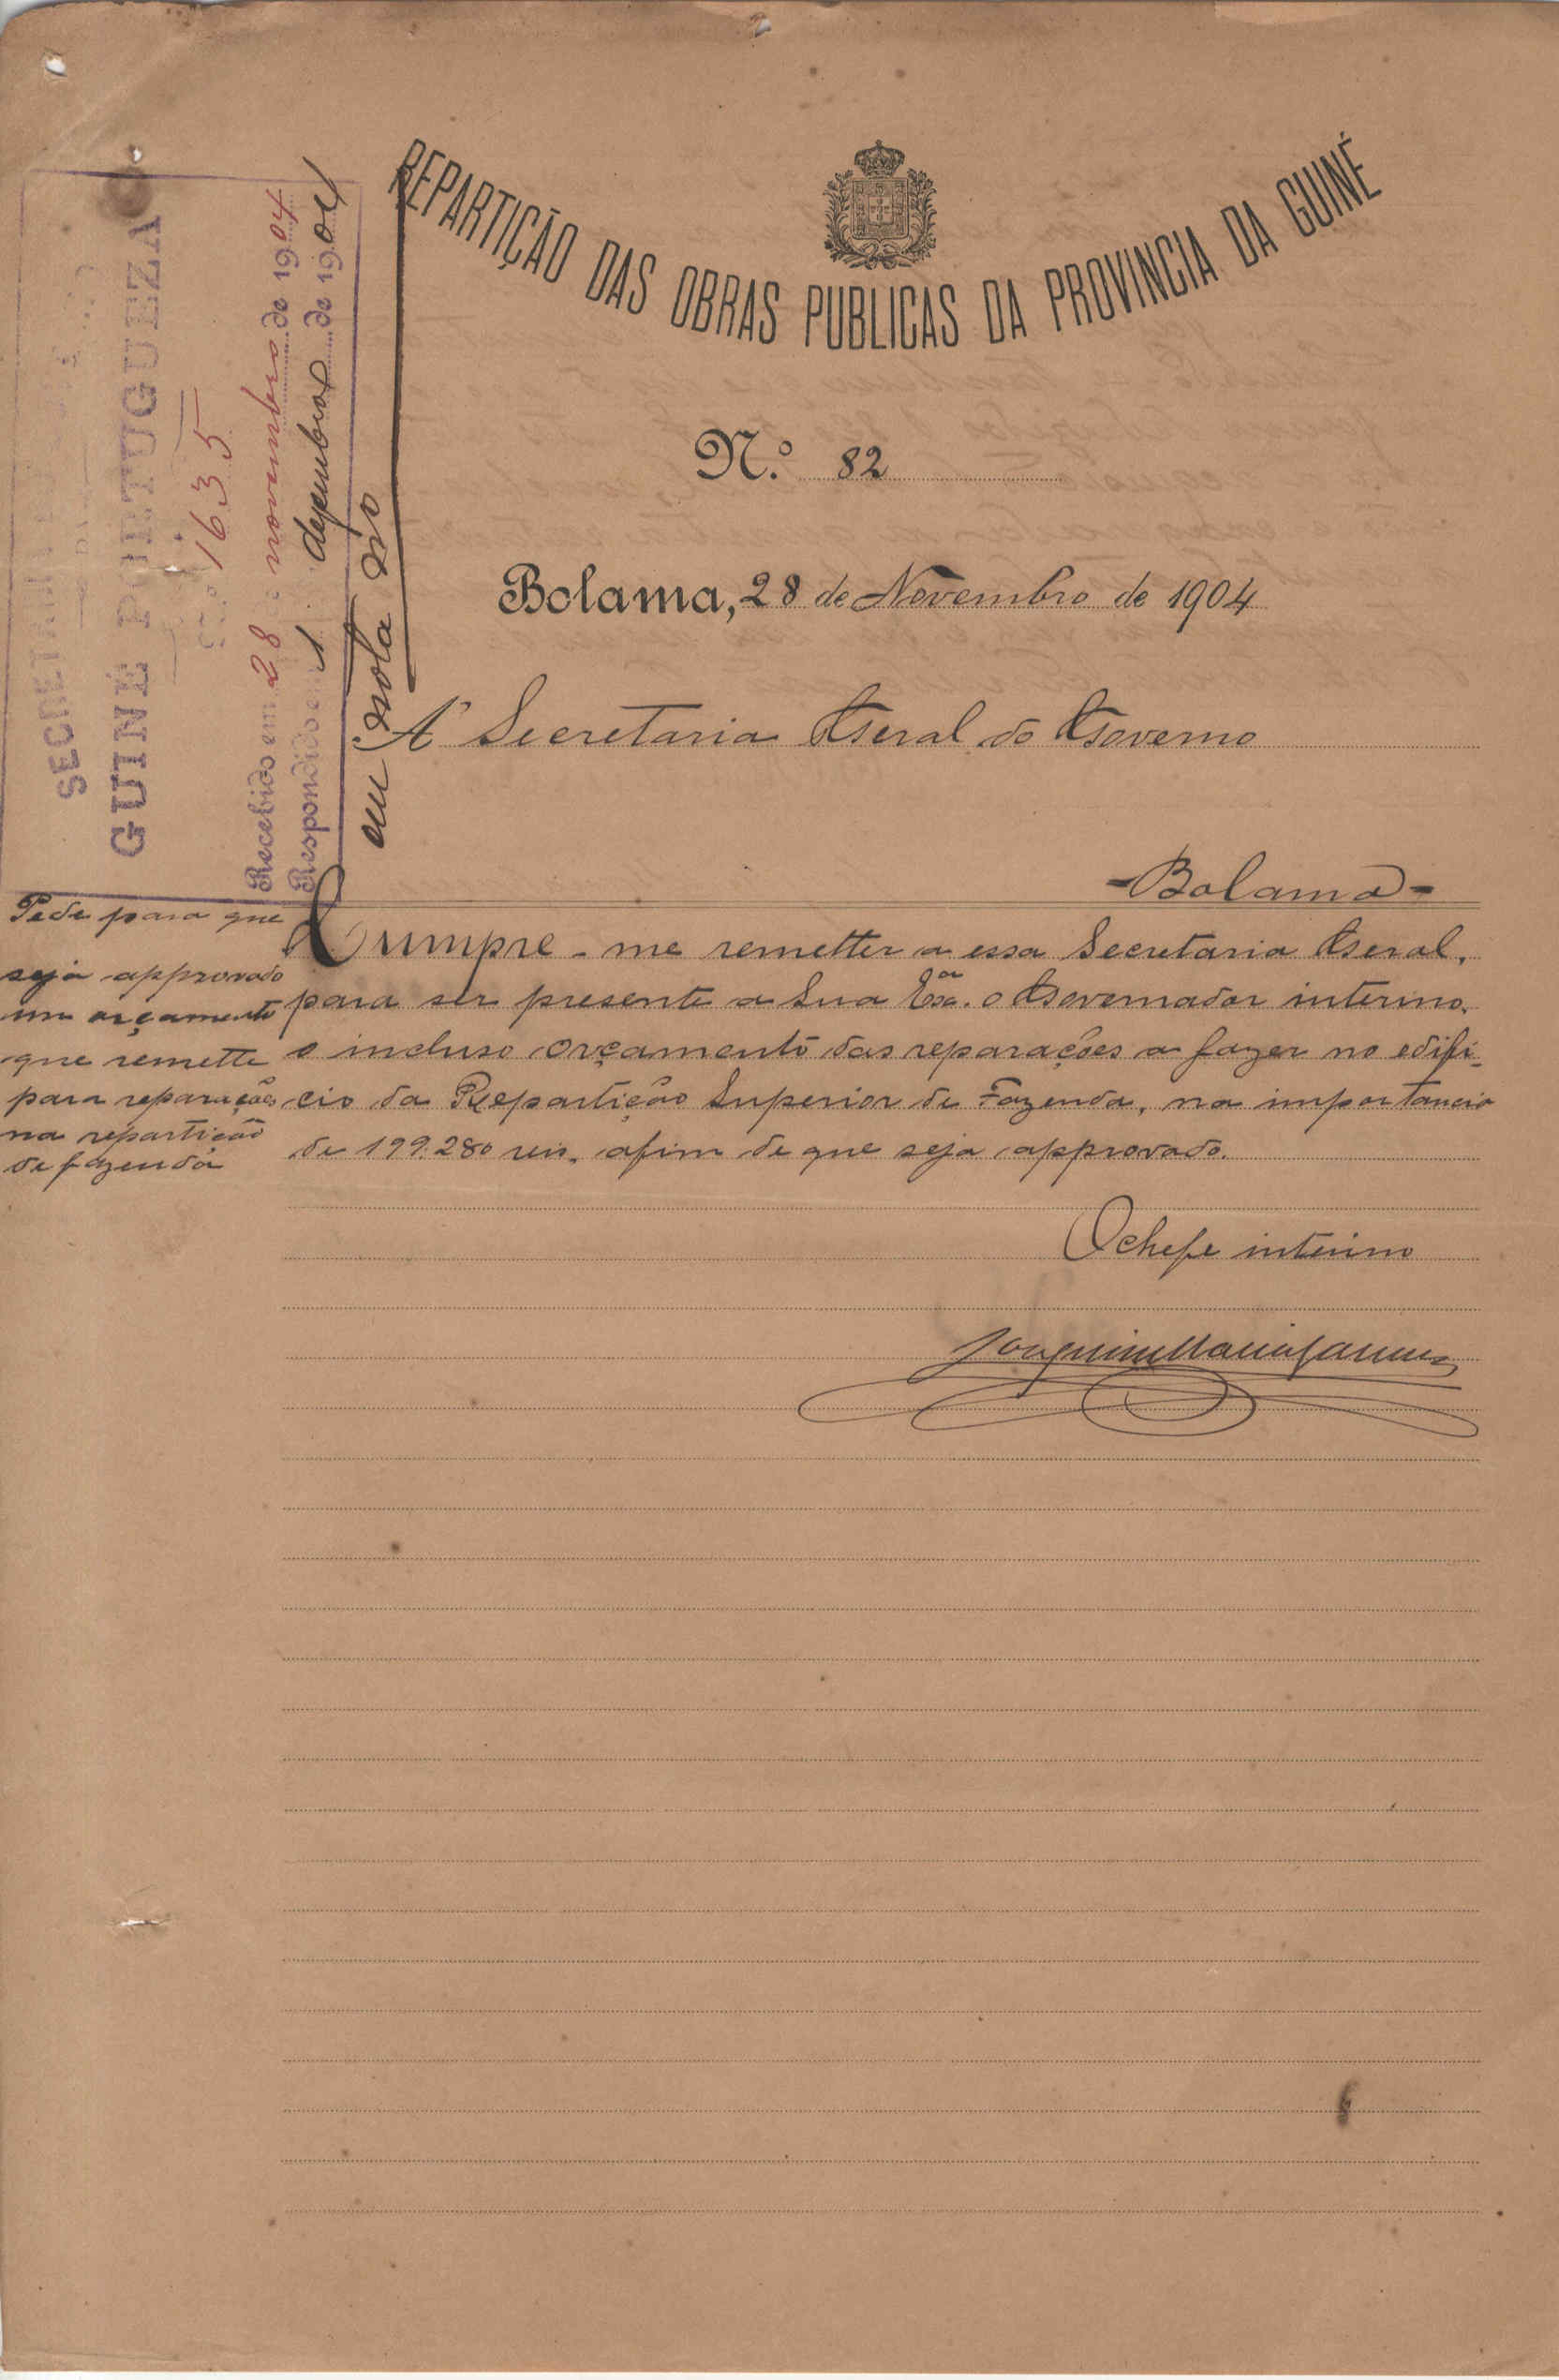 REPARTIÇÃO DAS OBRAS PUBLICAS DA PROVINCIA DA GUINÉ
N.º 82
Bolama, 28 de Novembro de 1904
Á Secretaria Geral do Governo
-Bolama-
Cumpre-me remetter a essa Secretaria Geral,
para ser presente a Sua Exa. o Governador interino,
o incluso orçamento das reparações a fazer no edifi-
cio da Repartição Superior de Fazenda, na importancia
de 199.280 reis, afim de que seja approvado.
O chefe interino
Joaquim Maria
SECRETARIA
GUINÉ PORTUGUEZA
N.º 1635
Recebido em 28 novembro de 1904
Respondido em 1 dezembro de 1904
em nota
Pede para que
seja approvado
um orçamento
que remette
para reparações
na repartição
de fazenda